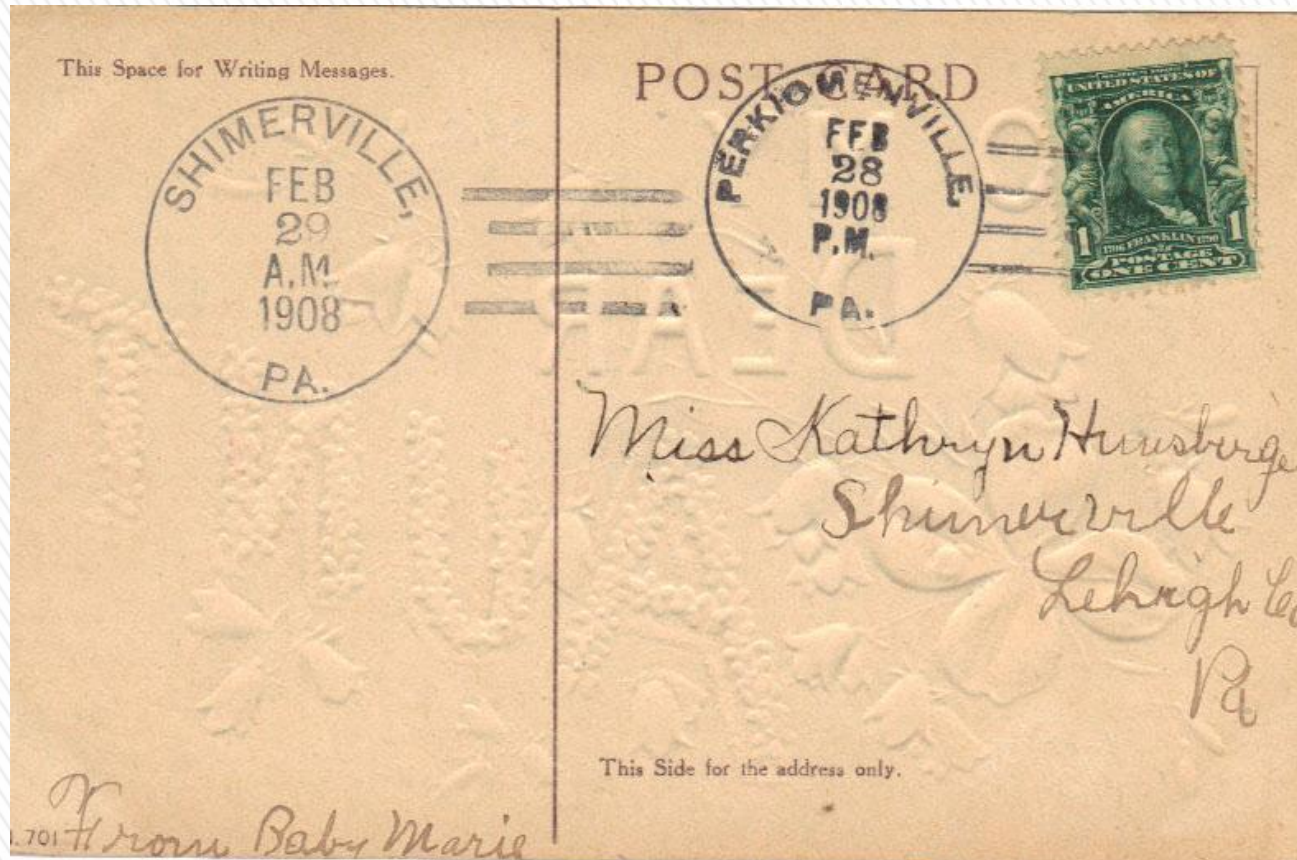 This Space for Writing Messages.
SHIMERVILLE,
FEB
29
A.M.
1908
PA.
POST CARD
PERKIOMENVILLE
FEB
28
1908
P.M.
PA.
UNITED STATES OF
AMERICA
1 1706 FRANKLIN 1790 1
POSTAGE
ONE CENT
Miss Kathryn Hunsberge
Shimerville
Lehigh Co
Pa
This Side for the address only.
701 From Baby Marie